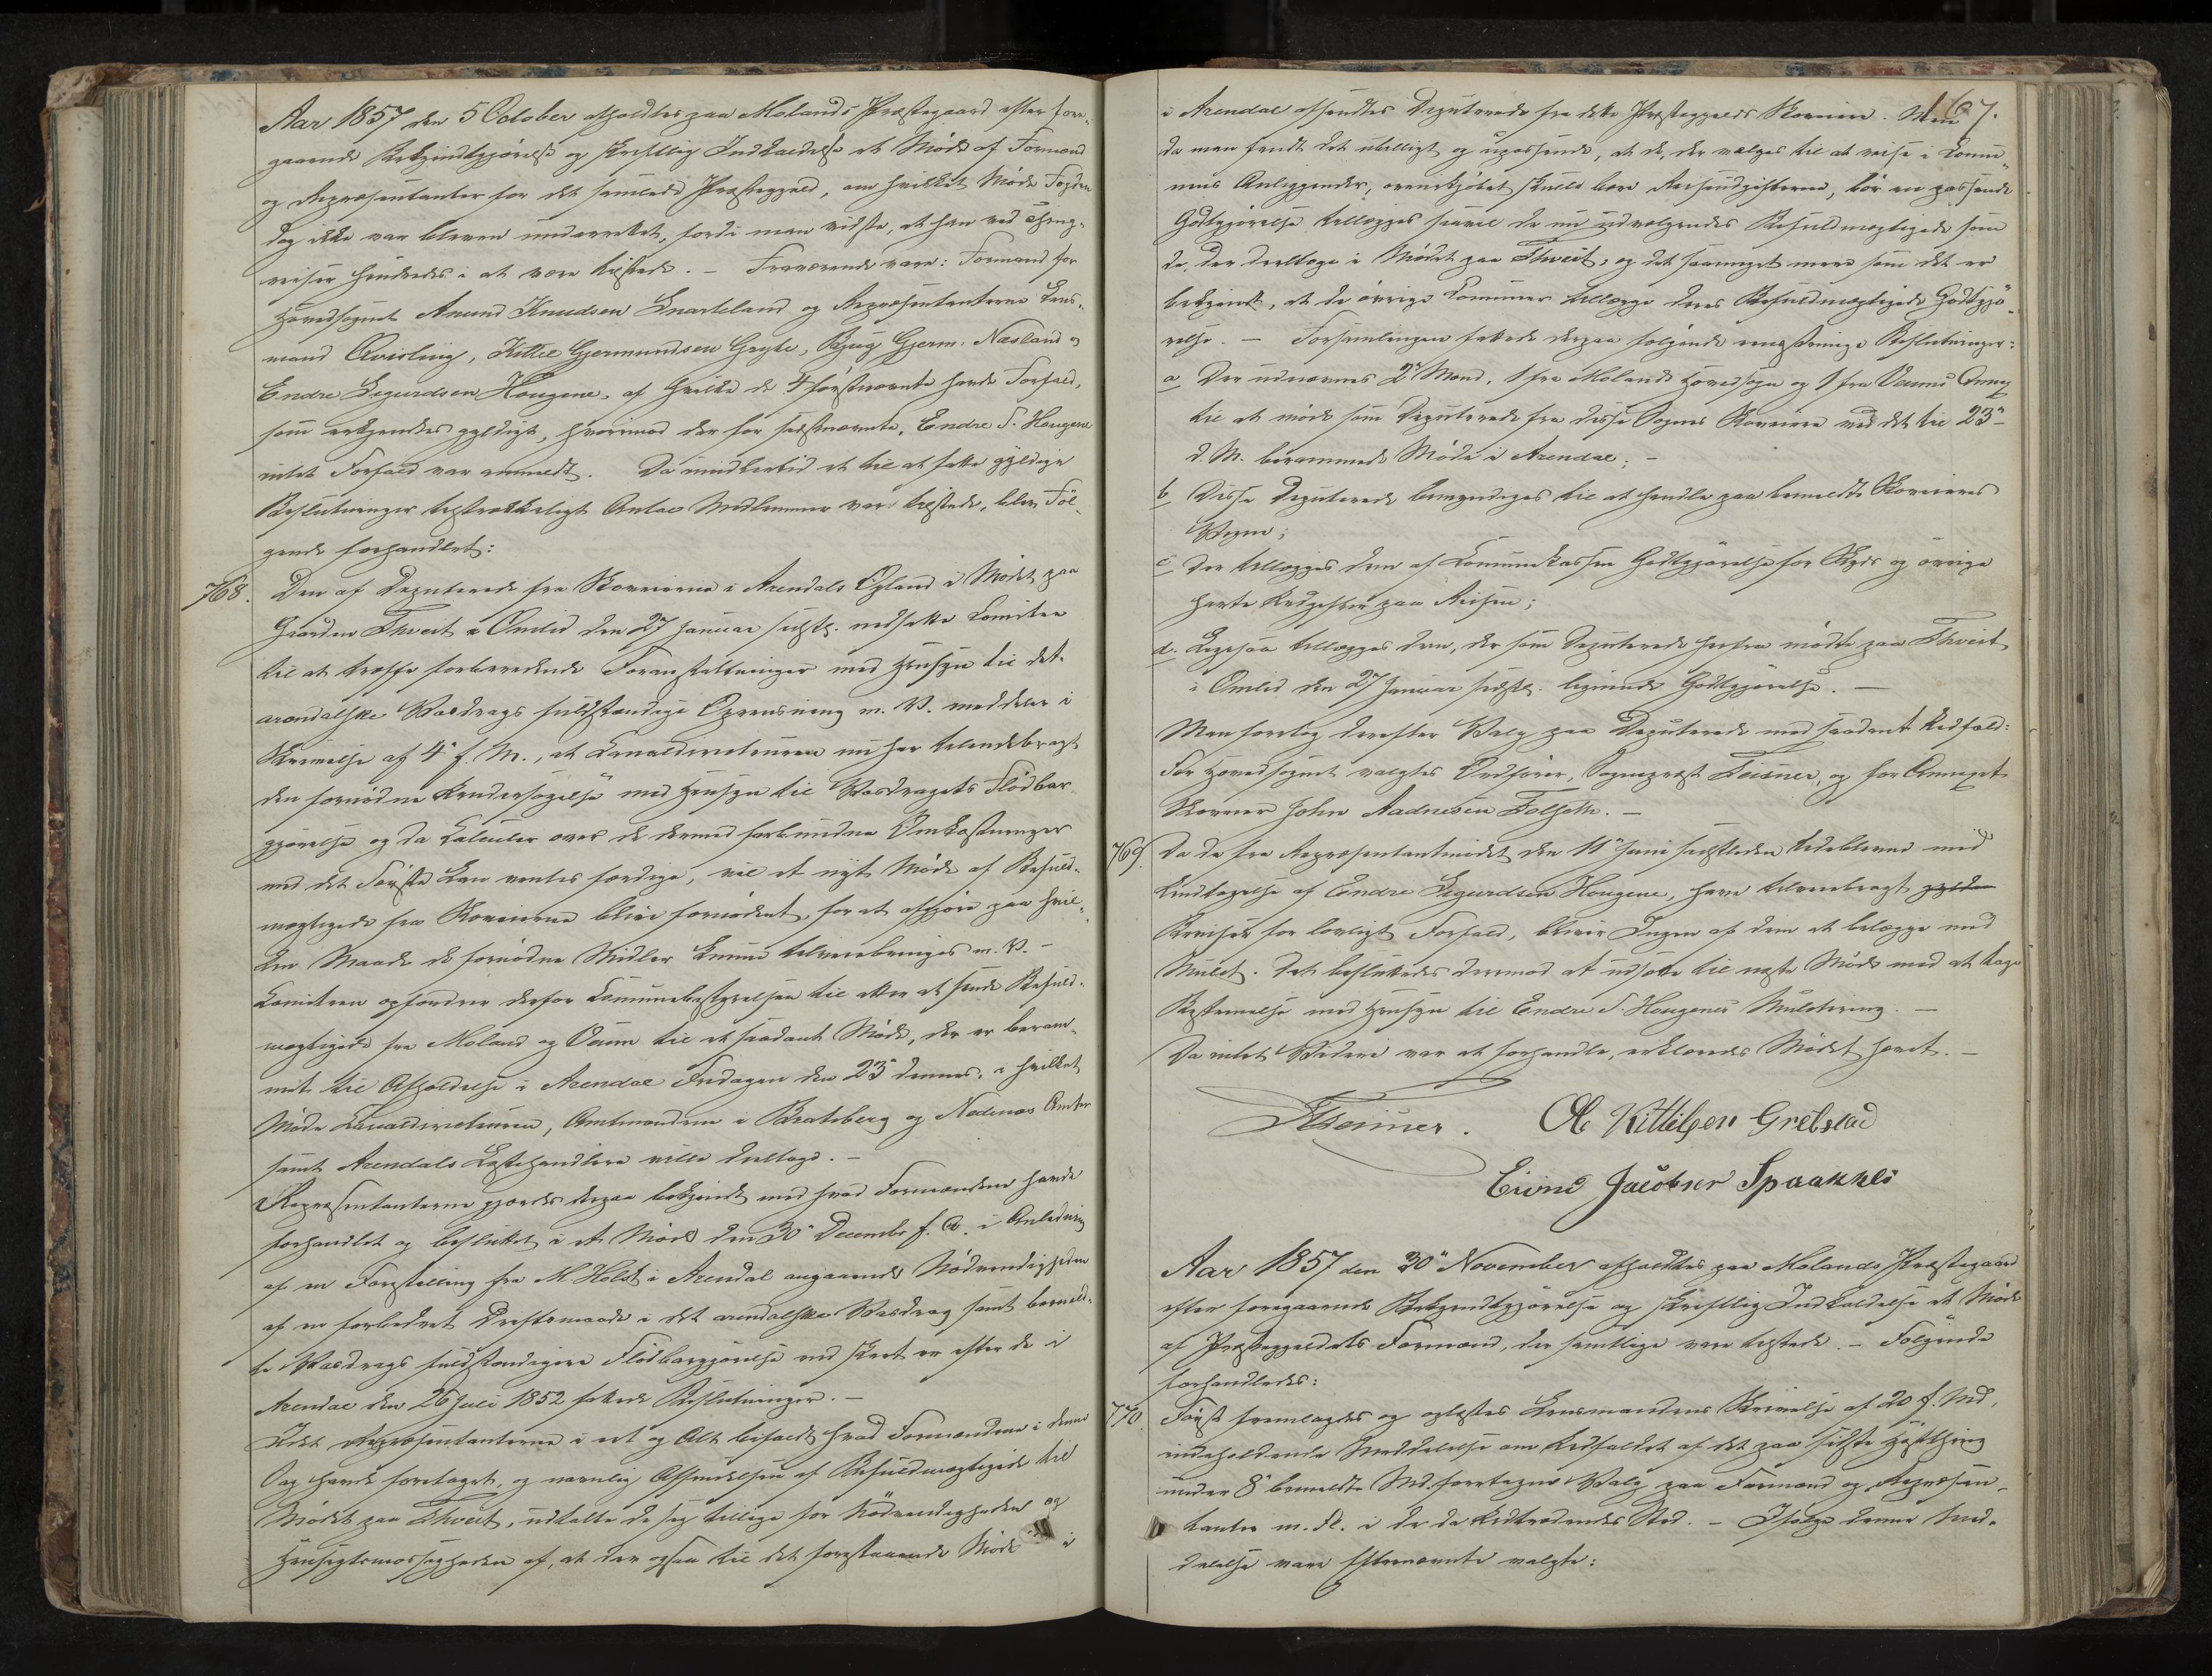 Aar 1857 den 5 October afholdtes paa Molands Præstegaard efter fore-
gaaende Bekjendtgjørelse og skriftlig Indkaldelse et Møde af Formænd
og Repræsentanter for det samlede Præstegjeld, om hvilket Møde Fogden
dog ikke var bleven underrettet, fordi man vidste, at han ved Thing-
reiser hindredes i at være tilstede. – Fraværende vare: Formand for
Hovedsognet Anund Knudsen Snarteland og Repræsentanterne Lens-
mand Qvisling, Kittel Gjermundsen Grøte, Bjug Gjerm. Næsland og
Endre Sigurdsen Haugene, af hvilke de 4 førstnævnte havde Forfald,
som erkjendtes gyldigt, hvorimod der for sidstnævnte, Endre S. Haugene
intet Forfald var anmeldt. Da imidlertid et til at fatte gyldige
Beslutninger tilstrækkeligt Antal Medlemmer var tilstede, blev Føl-
gende forhandlet:
768. Den af Deputerede fra Skoveierne i Arendals Opland i Mødet paa
Gaarden Thveit i Omlid den 27 Januar sidstl. nedsatte Comitee
til at træffe forberedende Foranstaltninger med Hensyn til det
arendalske Vasdrags fuldstændige Oprensning m. V. meddeler i
Skrivelse af 4 f. M., at Canaldirecteuren nu har tilendebragt
den fornødne Undersøgelse med Hensyn til Vasdragets Flødbar
gjørelse og da Calculer over de dermed forbundne Omkostninger
med det Første kan ventes færdige, vil et nyt Møde af Befuld-
mægtigede fra Skoveierne blive fornødent, for at afgjøre paa hvil-
ken Maade de fornødne Midler kunne tilveiebringes m. V. –
Comiteen opfordrer derfor Communebestyrelsen til atter at sende Befuld-
mægtigede fra Moland og Veum til et saadant Møde, der er beram-
met til Afholdelse i Arendal Fredagen den 23 dennes, i hvilket
Møde Canaldirecteuren, Amtmændene i Bratsberg og Nedenæs Amter
samt Arendals Lastehandlere ville deeltage. –
Repræsentanterne gjordes derpaa bekjendt med hvad Formændene havde
forhandlet og besluttet i et Møde den 30 Decembr f. A. i Anledning
af en Forestilling fra M. Holst i Arendal angaaende Nødvendigheden
af en forbedret Driftsmaade i det arendalske Vasdrag samt bemeld-
te Vasdrags fuldstændigere Flødbargjørelse end skeet er efter de i
Arendal den 26 Juli 1852 fattede Beslutninger. –
Idet Repræsentanterne i eet og Alt bifaldt hvad Formændene i denne
Sag havde foretaget, og navnlig Afsendelsen af Befuldmægtigede til
Mødet paa Thveit, udtalte de sig tillige for Nødvendigheden og
Hensigtsmæssigheden af, at der ogsaa til det forestaaende Møde i
167.
i Arendal afsendtes Deputerede fra dette Præstegjelds Skoveiere. Men
da man fandt det ubilligt og upassende, at de, der vælges til at reise i Commu-
nens Anliggender, ovenikjøbet skulle bære Reiseudgifterne, bør en passende
Godtgjørelse tillægges saavel de nu udvælgendes Befuldmægtigede som
de, der deeltoge i Mødet paa Thveit, og det saameget mere som det er
bekjendt, at de øvrige Communer tillægge deres Befuldmægtigede Godtgjø-
relse. – Forsamlingen fattede derpaa følgende eenstemmige Beslutninger:
a Der udnævnes 2 Mænd, 1 fra Molands Hovedsogn og 1 fra Veums Annex
til at møde som Deputerede fra disse Sognes Skoveiere ved det til 23
d. M. berammede Møde i Arendal; –
b Disse Deputerede bemyndiges til at handle paa bemeldte Skoveieres
Vegne;
c Der tillægges dem af Communekassen Godtgjørelse for Skyds og øvrige
havte Udgifter paa Reisen;
d. Ligesaa tillægges dem, der som Deputerede herfra mødte paa Thveit
i Omlid den 27 Januar sidstl. lignende Godtgjørelse. –
Man foretog derefter Valg paa Deputerede med saadant Udfald:
For Hovedsognet valgtes Ordfører, Sognepræst Feiner, og for Annexet
Skoveier John Aadnesen Folseth. –
769 Da de fra Repræsentantmødet den 11 Juni sidstleden Udeblevne med
Undtagelse af Endre Sigurdsen Haugene, have tilveiebragt
Beviser for lovligt Forfald, bliver Ingen af dem at belægge med
Mulct. Det besluttedes derimod at udsætte til næste Møde med at tage
Bestemmelse med Hensyn til Endre S. Haugenes Mulctering. –
Da intet Videre var at forhandle, erklæredes Mødet hævet. –
Feiner. Ole Kittilsen Grelstad
Eivind Jacobsen Spaakkli
Aar 1857 den 30 November afholdtes paa Molands Præstegaard
efter foregaaende Bekjendtgjørelse og skriftlig Indkaldelse et Møde
af Præstegjeldets Formænd, der samtlige vare tilstede. – Følgende
forhandledes:
770 Først fremlagdes og oplæstes Lensmandens Skrivelse af 20 f. Md,
indeholdende Meddelelse om Udfaldet af det paa sidste Høstthing
under 8 bemeldte Md. foretagne Valg paa Formænd og Repræsen-
tanter m. Fl. i de da Udtrædendes Sted. – Ifølge denne Med-
delelse vare Efternævnte valgte: